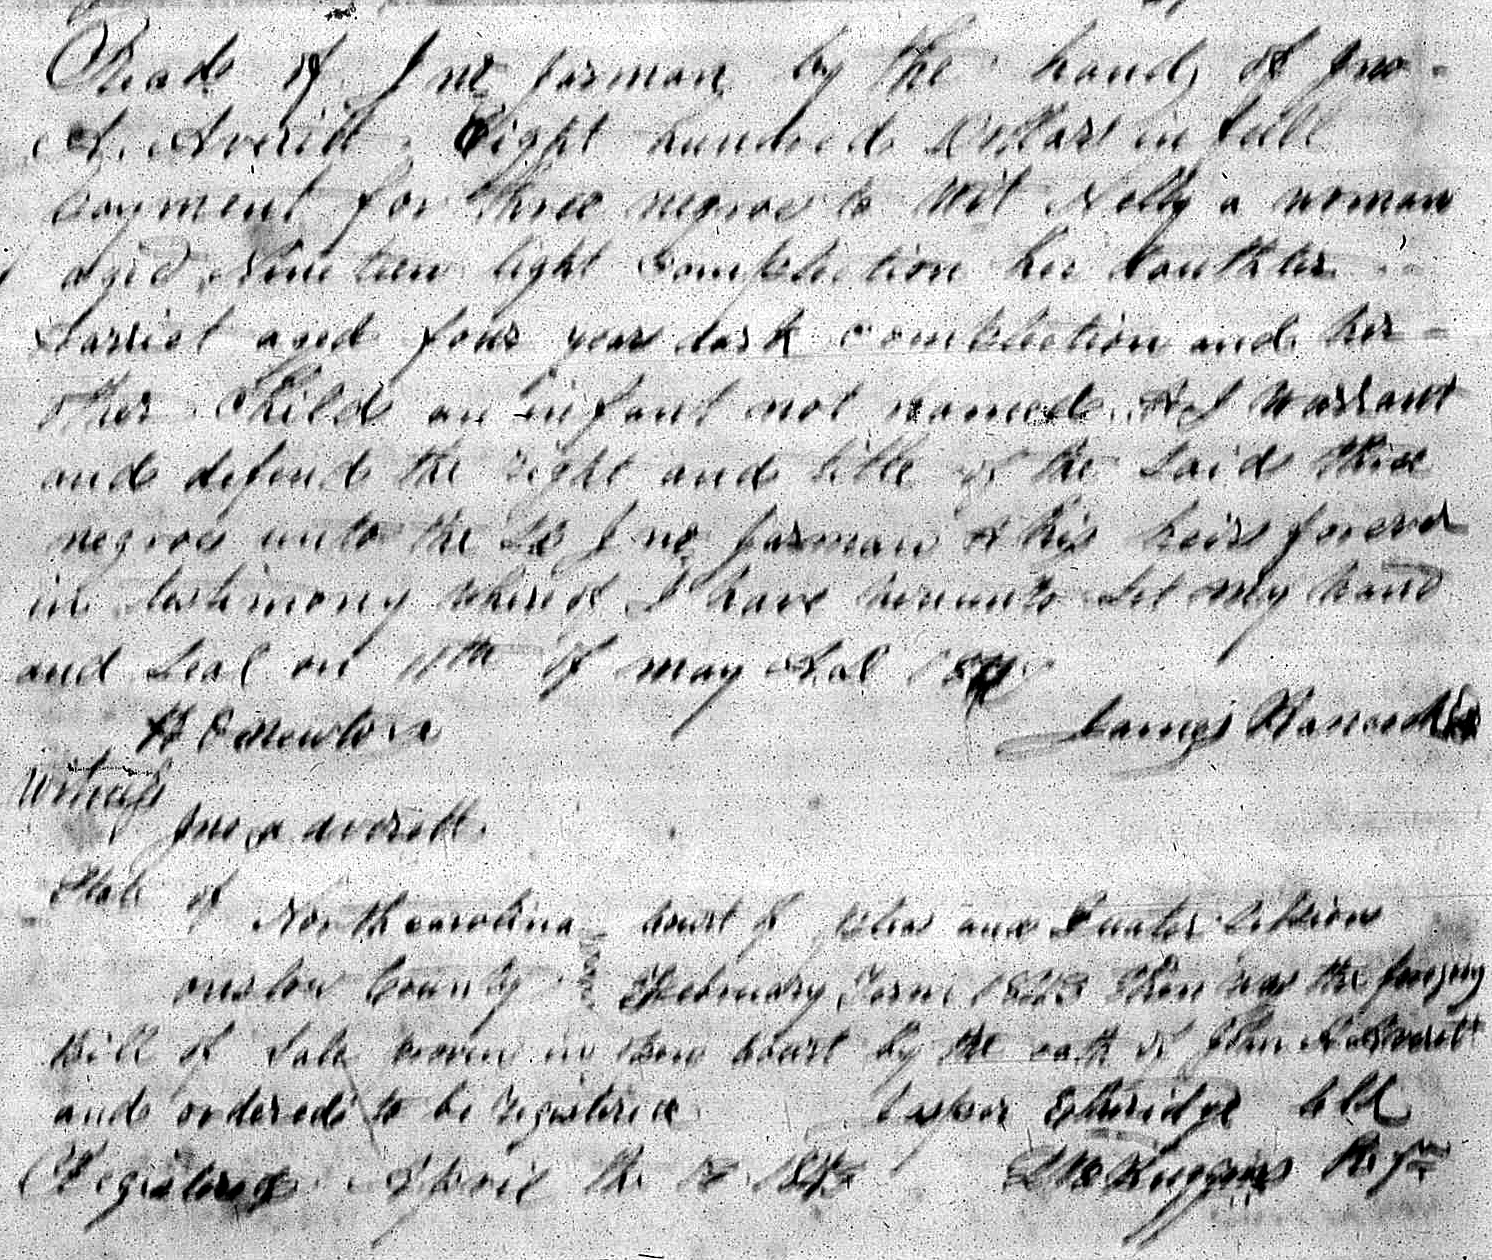 Recd of Jno Jarman by the hand of Jno
A. Averitt Eight hundred Dollars in full
payment for three negroes to wit Nelly a woman
aged Nineteen light Complection her daughter
Harriet aged four years dark complection and her
other Child an infant not named & I Warrant
and defend the right and title of the said three
negroes unto the sd Jno Jarman & his heirs forever
in testimony whereof I have hereunto set my hand
and seal on 11th of may
James
Newton
Witness
Jno A Averett
State of North carolina Court of Pleas and Quater Session
onslow County February Term 1843 Then was the foregoing
Bill of Sale proven in open Court by the oath of John A Averett
and ordered to be registered Jasper Etheridge Clk
Registered April the 1843 Huggins Regr